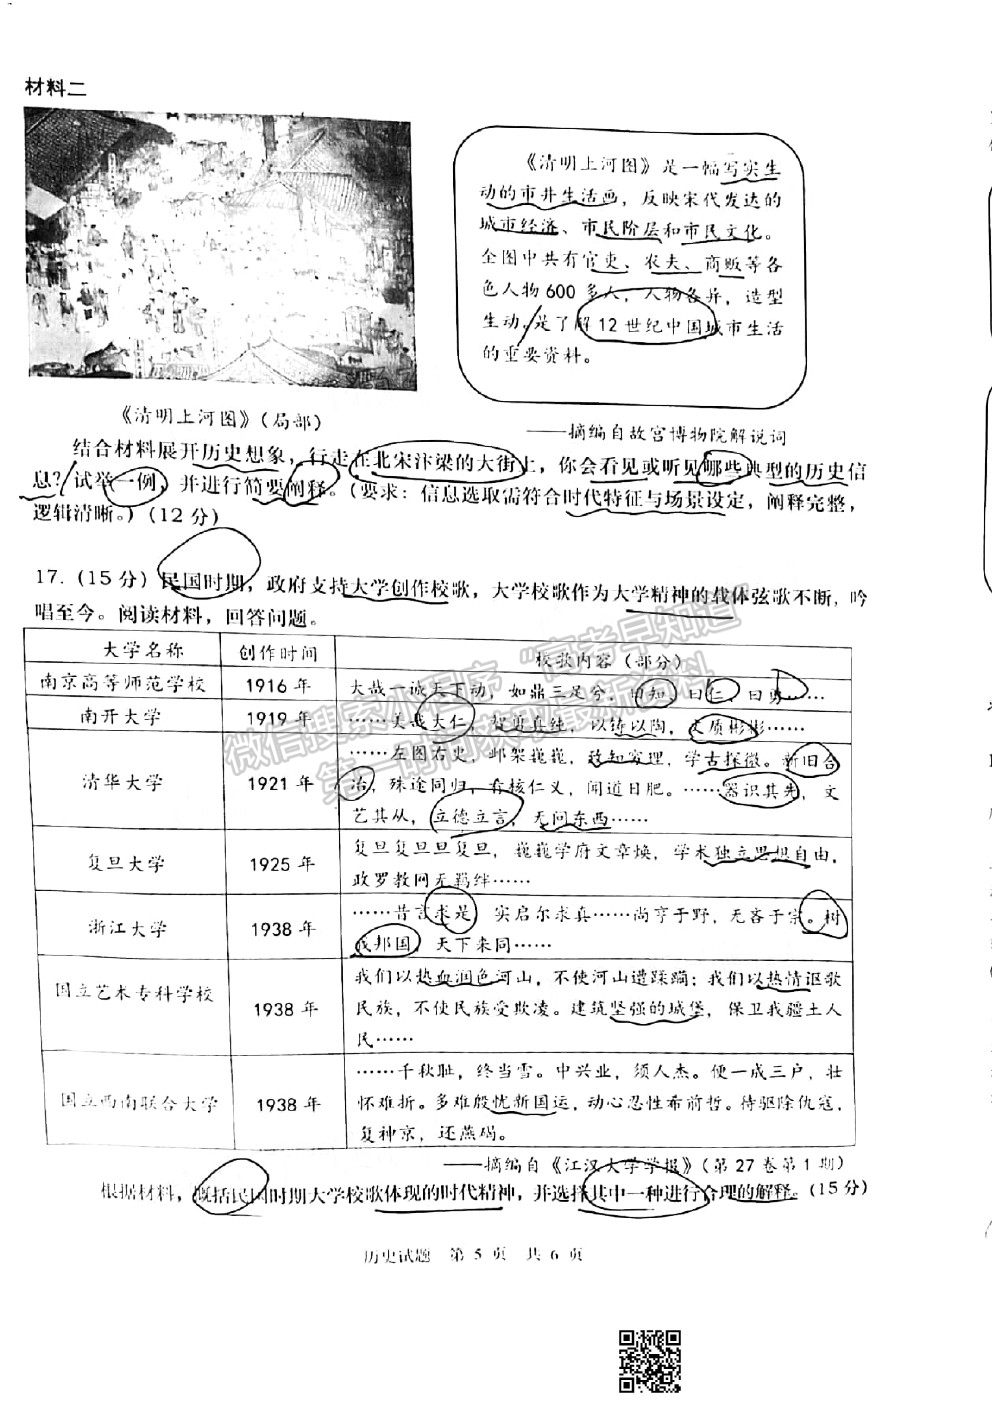 材料二
《清明上河图》是一幅写实生
动的市井生活画，反映宋代发达的
城市经济、市民阶层和市民文化。
全图中共有官吏、农夫、商贩等各
色人物600多人，人物各异，造型
生动，是了解12世纪中国城市生活
的重要资料。
《清明上河图》（局部）
——摘编自故宫博物院解说词
结合材料展开历史想象，行走在北宋汴梁的大街上，你会看见或听见哪些典型的历史信
息？试举一例，并进行简要阐释。（要求：信息选取需符合时代特征与场景设定，阐释完整，
逻辑清晰。）（12分）
17.（15分）民国时期，政府支持大学创作校歌，大学校歌作为大学精神的载体弦歌不断，吟
唱至今。阅读材料，回答问题。
大学名称 创作时间 校歌内容（部分）
南京高等师范学校 1916年 大哉一诚天下动，如鼎三足兮，曰知，曰仁，曰勇……
南开大学 1919年 ……美哉大仁，智勇真纯，以铸以陶，文质彬彬……
清华大学 1921年 ……左图右史，邺架巍巍，致知穷理，学古探微。新旧合
冶，殊途同归，肴核仁义，闻道日肥。……器识其先，文
艺其从，立德立言，无问东西……
复旦大学 1925年 复旦复旦旦复旦，巍巍学府文章焕，学术独立思想自由，
政罗教网无羁绊……
浙江大学 1938年 ……昔言求是，实启尔求真……尚亨于野，无吝于宗。树
我邦国，天下来同……
国立艺术专科学校 1938年 我们以热血润色河山，不使河山遭蹂躏；我们以热情讴歌
民族，不使民族受欺凌。建筑坚强的城堡，保卫我疆土人
民……
国立西南联合大学 1938年 ……千秋耻，终当雪。中兴业，须人杰。便一成三户，壮
怀难折。多难殷忧新国运，动心忍性希前哲。待驱除仇寇，
复神京，还燕碣。
——摘编自《江汉大学学报》（第27卷第1期）
根据材料，概括民国时期大学校歌体现的时代精神，并选择其中一种进行合理的解释。（15分）
历史试题 第5页 共6页
微信搜索小程序“高考早知道”
第一时间获取最新资料